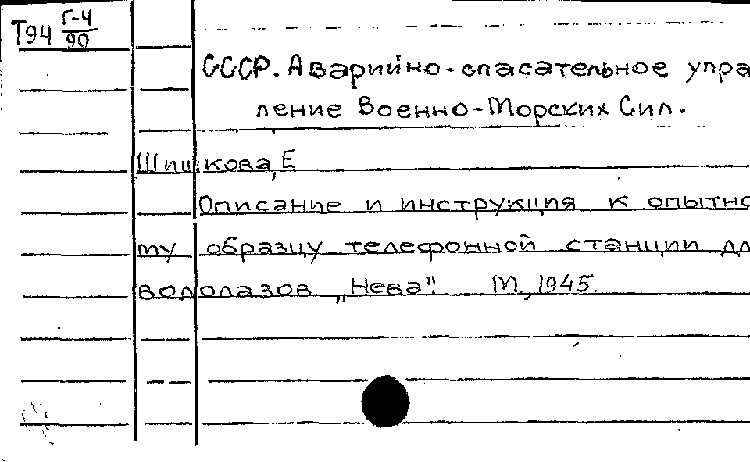 Т94 Г-4/90
СССР. Аварийно-спасательное упра
ление Военно-Морских Сил.
Шишкова, Е
Описание и инструкция к опытно
му образцу телефонной станции дл
водолазов „Нева". М., 1945.